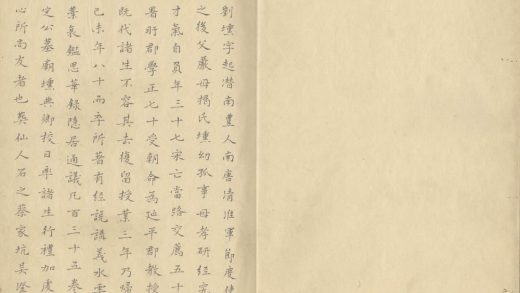 劉壎字起潛南豐人南唐清淮軍節度使
之後父嚴母揭氏壎幼孤事母孝研經究
才氣自負年三十七宋亡當路交薦五十
署盱郡學正七十受朝命為延平郡教授
既代諸生不容其去復留授業三年乃歸
己未年八十而卒所著有經說講義水雲
業哀鑑思華錄隱居通議凡百三十五卷
定公墓廟壎典鄉校日率諸生行禮加虔
心所尚友者也葬仙人石之蔡家坑吳澄